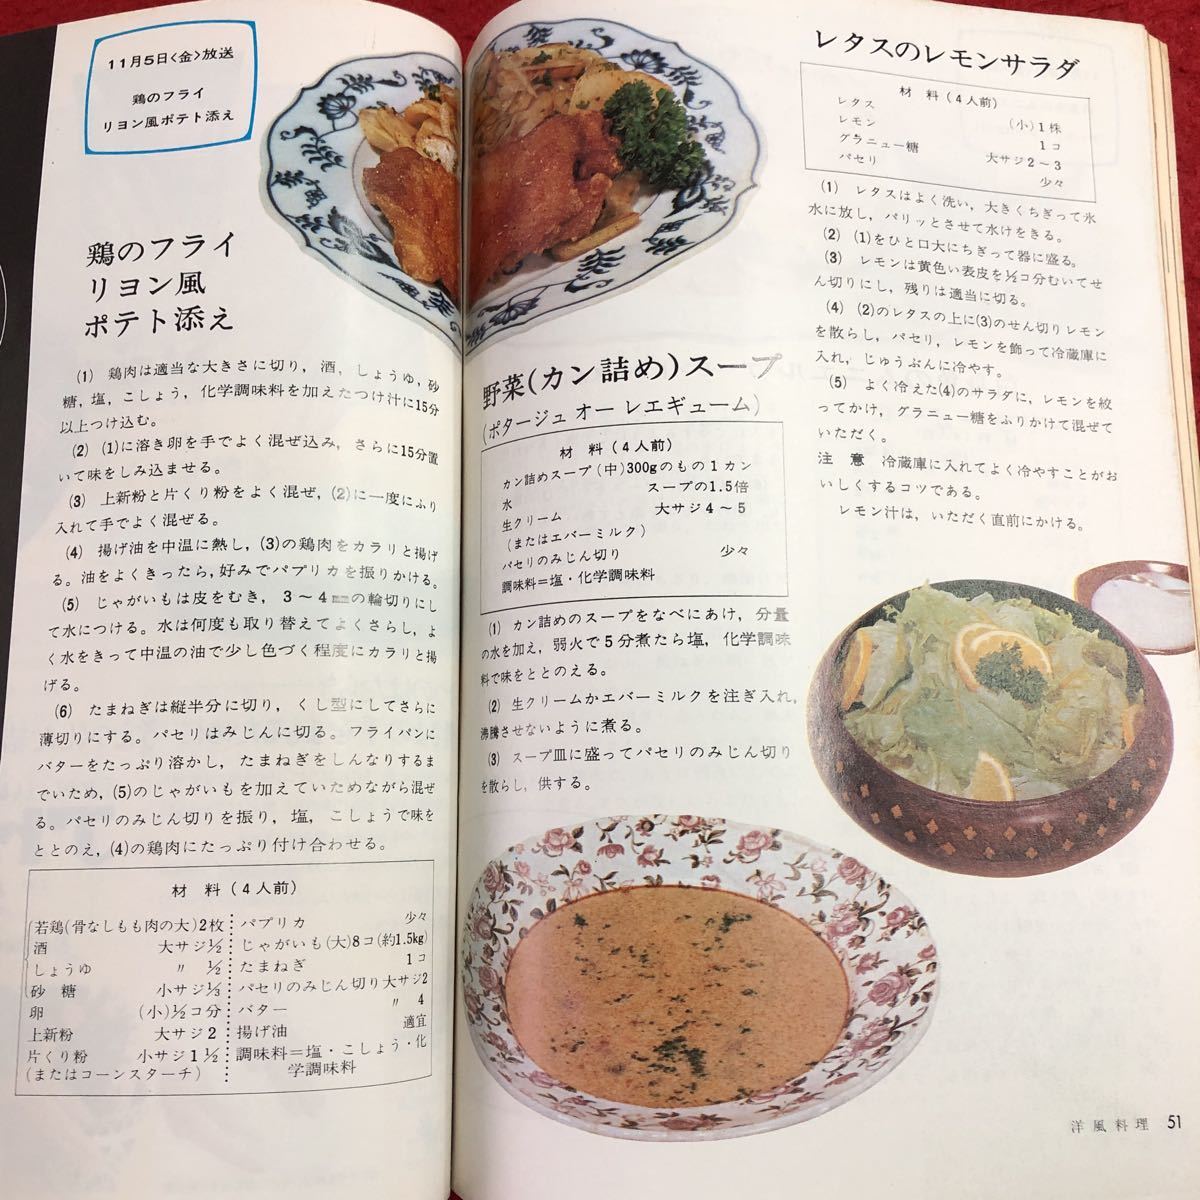 11月5日〈金〉放送
鶏のフライ
リヨン風ポテト添え
鶏のフライ
リヨン風
ポテト添え
(1) 鶏肉は適当な大きさに切り, 酒, しょうゆ, 砂
糖, 塩, こしょう, 化学調味料を加えたつけ汁に15分
以上つけ込む。
(2) (1)に溶き卵を手でよく混ぜ込み, さらに15分置
いて味をしみ込ませる。
(3) 上新粉と片くり粉をよく混ぜ, (2)に一度にふり
入れて手でよく混ぜる。
(4) 揚げ油を中温に熱し, (3)の鶏肉をカラリと揚げ
る。油をよくきったら, 好みでパプリカを振りかける。
(5) じゃがいもは皮をむき, 3〜4㎜の輪切りにし
て水につける。水は何度も取り替えてよくさらし, よ
く水をきって中温の油で少し色づく程度にカラリと揚
げる。
(6) たまねぎは縦半分に切り, くし型にしてさらに
薄切りにする。パセリはみじんに切る。フライパンに
バターをたっぷり溶かし, たまねぎをしんなりするま
でいため, (5)のじゃがいもを加えていためながら混ぜ
る。パセリのみじん切りを振り, 塩, こしょうで味を
ととのえ, (4)の鶏肉にたっぷり付け合わせる。
材 料 (4人前)
若鶏(骨なしもも肉の大)2枚
酒 大サジ½
しょうゆ 〃 ½
砂 糖 小サジ⅓
卵 (小)½コ分
上新粉 大サジ2
片くり粉 小サジ1½
(またはコーンスターチ)
パプリカ 少々
じゃがいも(大)8コ(約1.5kg)
たまねぎ 1コ
パセリのみじん切り大サジ2
バター 〃 4
揚げ油 適宜
調味料=塩・こしょう・化
学調味料
野菜(カン詰め)スープ
(ポタージュ オー レエギューム)
材 料 (4人前)
カン詰めスープ(中)300gのもの1カン
水 スープの1.5倍
生クリーム 大サジ4〜5
(またはエバーミルク)
パセリのみじん切り 少々
調味料=塩・化学調味料
(1) カン詰めのスープをなべにあけ, 分量
の水を加え, 弱火で5分煮たら塩, 化学調味
料で味をととのえる。
(2) 生クリームかエバーミルクを注ぎ入れ,
沸騰させないように煮る。
(3) スープ皿に盛ってパセリのみじん切り
を散らし, 供する。
レタスのレモンサラダ
材 料 (4人前)
レタス (小)1株
レモン 1コ
グラニュー糖 大サジ2〜3
パセリ 少々
(1) レタスはよく洗い, 大きくちぎって氷
水に放し, パリッとさせて水けをきる。
(2) (1)をひと口大にちぎって器に盛る。
(3) レモンは黄色い表皮を½コ分むいてせ
ん切りにし, 残りは適当に切る。
(4) (2)のレタスの上に(3)のせん切りレモン
を散らし, パセリ, レモンを飾って冷蔵庫に
入れ, じゅうぶんに冷やす。
(5) よく冷えた(4)のサラダに, レモンを絞
ってかけ, グラニュー糖をふりかけて混ぜて
いただく。
注 意 冷蔵庫に入れてよく冷やすことがお
いしくするコツである。
レモン汁は, いただく直前にかける。
洋風料理 51